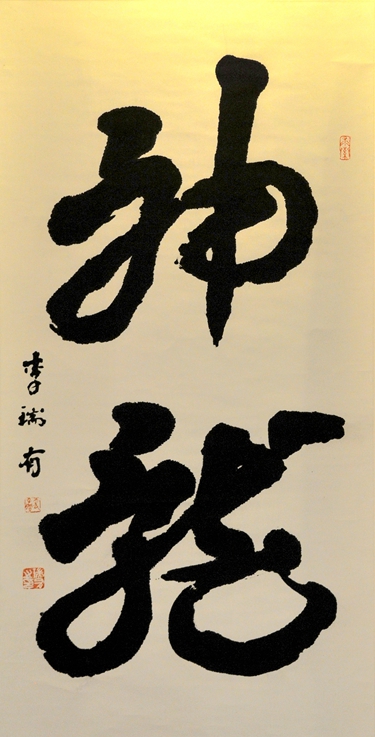 神
龍
李瑞有